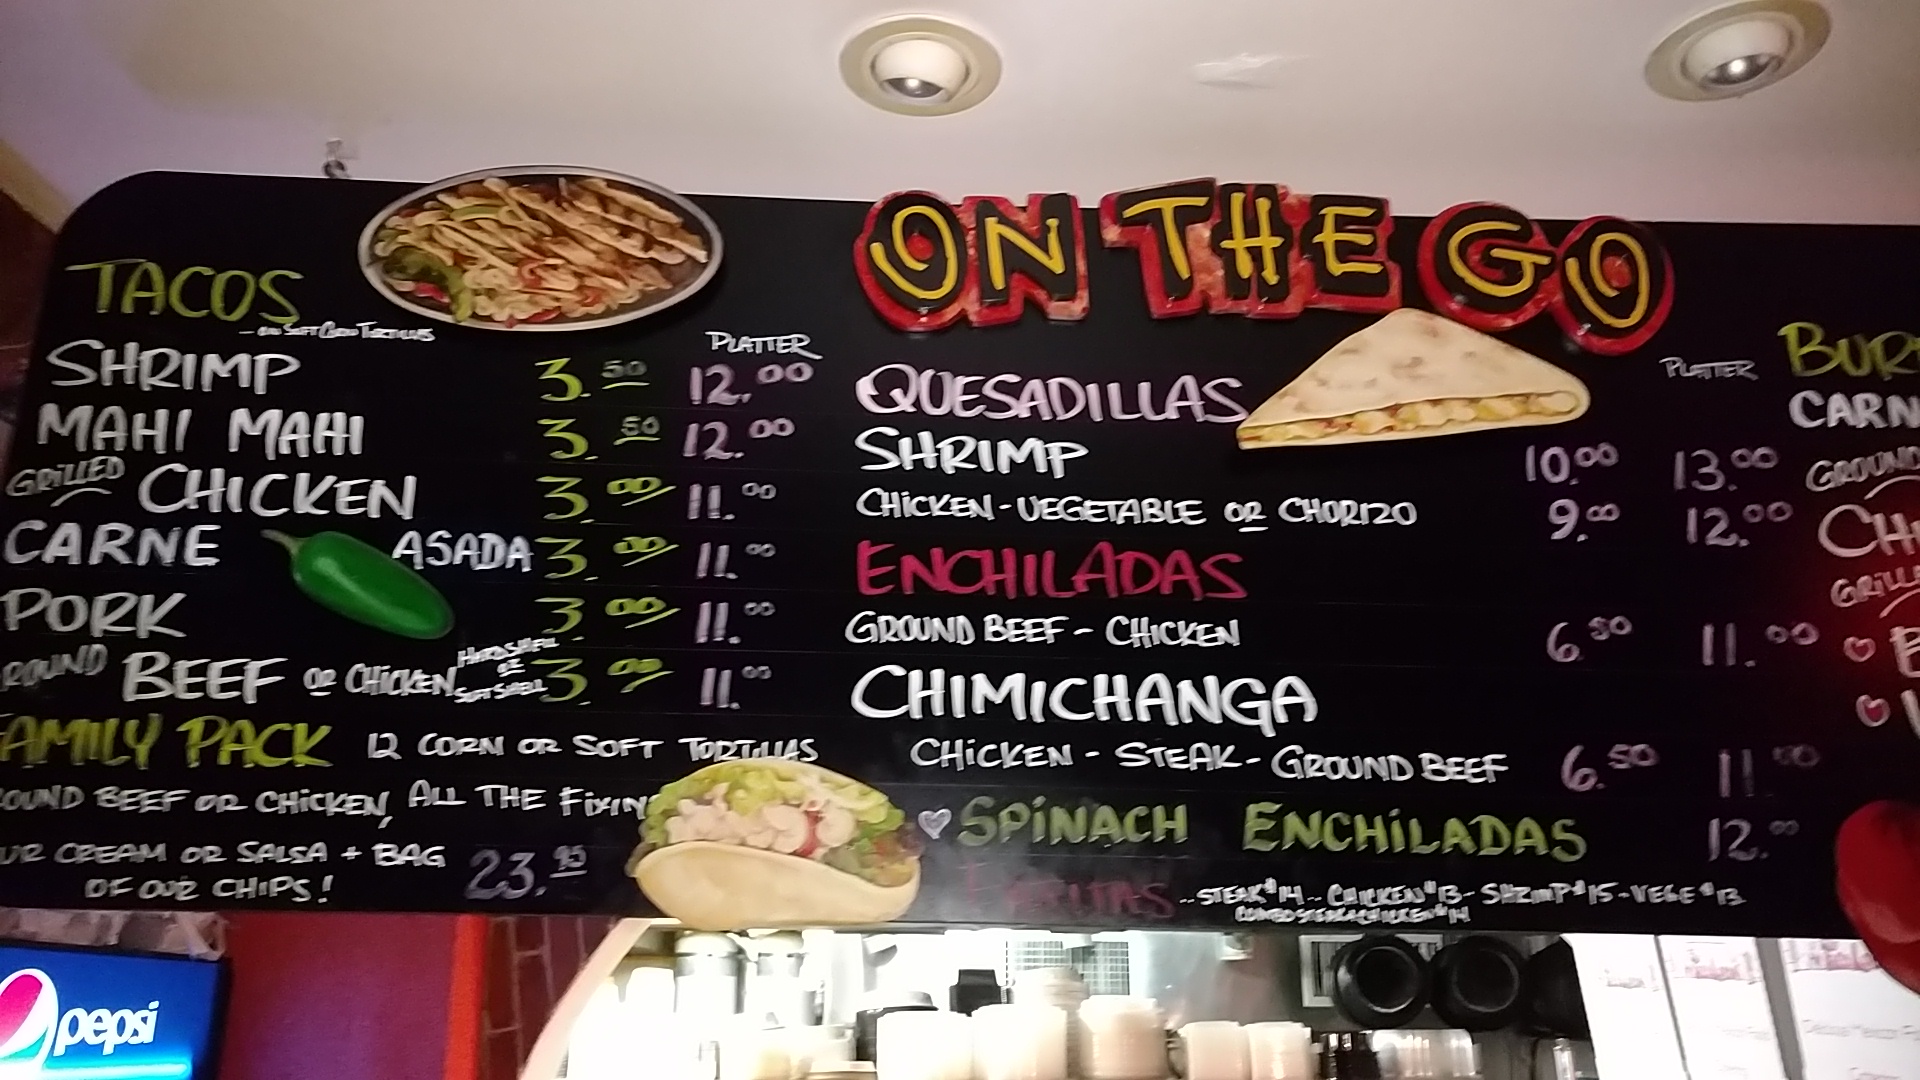 ON THE GO
TACOS
- ON SOFT CORN TORTILLAS
PLATTER
SHRIMP 3.50 12.00
MAHI MAHI 3.50 12.00
GRILLED CHICKEN 3.00 11.00
CARNE ASADA 3.00 11.00
PORK 3.00 11.00
ROUND BEEF OR CHICKEN HARDSHELL OR SOFTSHELL 3.00 11.00
FAMILY PACK 12 CORN OR SOFT TORTILLAS
OUND BEEF OR CHICKEN, ALL THE FIXIN
UR CREAM OR SALSA + BAG
OF OUR CHIPS! 23.95
PLATTER
QUESADILLAS
SHRIMP 10.00 13.00
CHICKEN - VEGETABLE OR CHORIZO 9.00 12.00
ENCHILADAS
GROUND BEEF - CHICKEN 6.50 11.00
CHIMICHANGA
CHICKEN - STEAK - GROUND BEEF 6.50 11.00
SPINACH ENCHILADAS 12.00
FAJITAS -- STEAK $14 -- CHICKEN $13 - SHRIMP $15 - VEGE $13
COMBO STEAK & CHICKEN $14
BUR
CARN
GROUND
CH
GRILL
pepsi